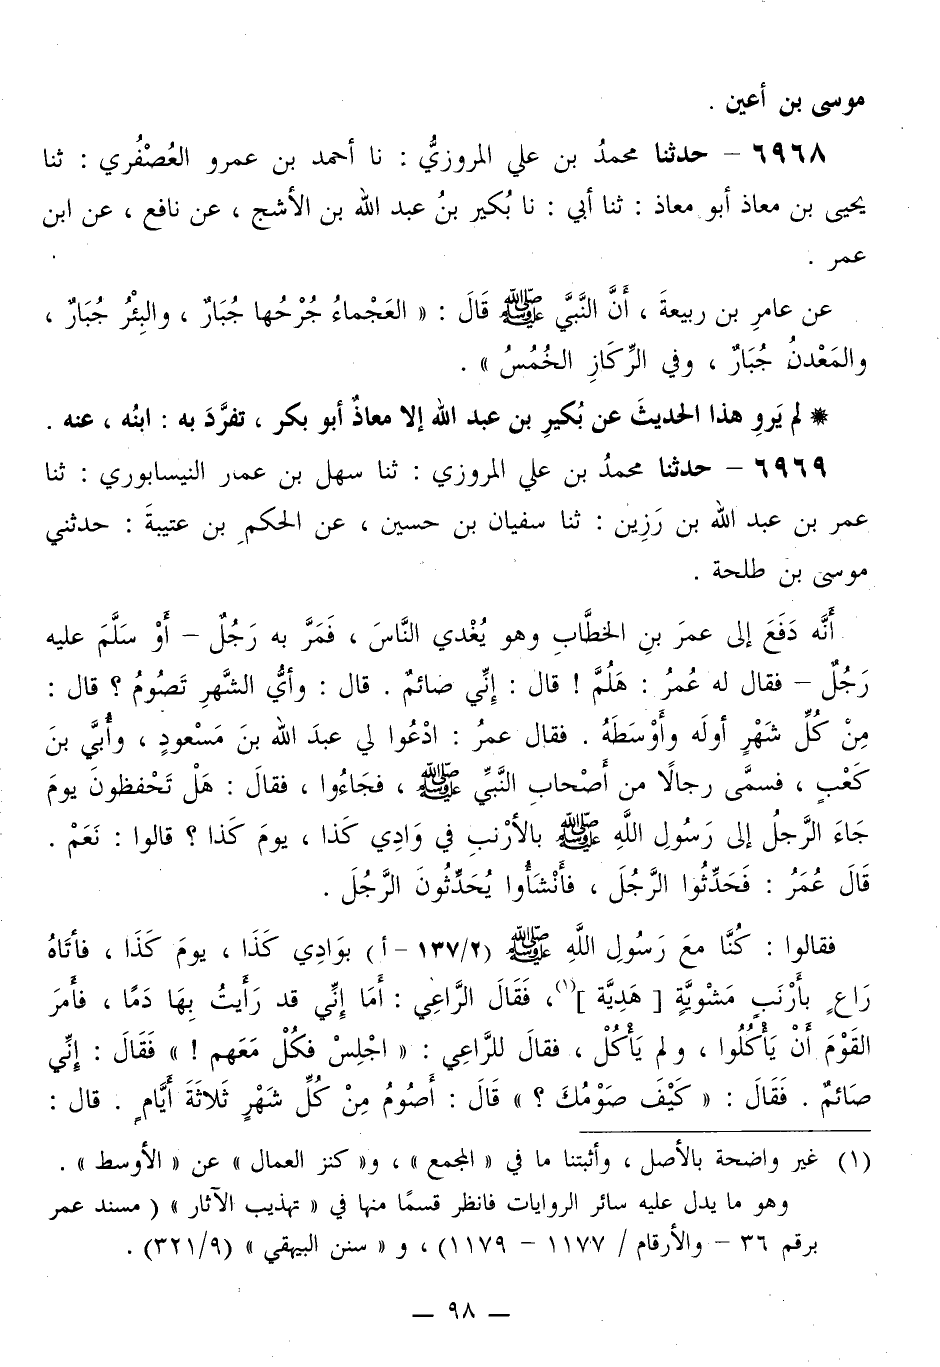 موسى بن أعين .
٦٩٦٨ – حدثنا محمدُ بن علي المروزيُّ : نا أحمد بن عمرو العُصْفُري : ثنا
يحيى بن معاذ أبو معاذ : ثنا أبي : نا بُكير بنُ عبد الله بن الأشج ، عن نافع ، عن ابن
عمر .
عن عامرِ بن ربيعةَ ، أَنَّ النَّبيَّ ﷺ قَالَ : « العَجْماءُ جُرْحُها جُبَارٌ ، والبِئْرُ جُبَارٌ ،
والمَعْدنُ جُبَارٌ ، وفي الرِّكَازِ الخُمُسُ » .
* لم يَروِ هذا الحديثَ عن بُكيرِ بن عبد الله إلا معاذٌ أبو بكر ، تفرَّدَ به : ابنُه ، عنه .
٦٩٦٩ – حدثنا محمدُ بن علي المروزي : ثنا سهل بن عمار النيسابوري : ثنا
عمر بن عبد الله بن رَزِين : ثنا سفيان بن حسين ، عن الحكمِ بن عتيبةَ : حدثني
موسى بن طلحة .
أَنَّه دَفَعَ إلى عمرَ بنِ الخطَّابِ وهو يُغْدي النَّاسَ ، فَمَرَّ به رَجُلٌ – أَوْ سَلَّمَ عليه
رَجُلٌ – فقال له عُمرُ : هَلُمَّ ! قال : إِنِّي صائمٌ . قال : وأيُّ الشَّهرِ تَصُومُ ؟ قال :
مِنْ كُلِّ شَهْرٍ أولَه وأَوْسَطَهُ . فقال عمرُ : ادْعُوا لي عبدَ الله بنَ مَسْعودٍ ، وأُبيَّ بنَ
كَعْبٍ ، فسمَّى رجالًا من أَصْحابِ النَّبيِّ ﷺ ، فجَاءُوا ، فقالَ : هَلْ تَحْفظونَ يومَ
جَاءَ الرَّجلُ إلى رَسُولِ اللَّهِ ﷺ بالأرْنبِ في وَادِي كَذا ، يومَ كَذا ؟ قالوا : نَعَمْ .
قَالَ عُمَرُ : فَحَدِّثُوا الرَّجُلَ ، فأَنْشَأُوا يُحَدِّثُونَ الرَّجُلَ .
فقالوا : كُنَّا معَ رَسُولِ اللَّهِ ﷺ (١٣٧/٢ – أ) بوَادِي كَذَا ، يومَ كَذَا ، فأتَاهُ
رَاعٍ بأَرْنَبٍ مَشْويَّةٍ [ هَدِيَّة ](١)، فَقَالَ الرَّاعِي : أَمَا إِنِّي قد رَأَيتُ بِهَا دَمًا ، فأَمرَ
القَوْمَ أَنْ يَأْكُلُوا ، ولم يَأْكُلْ ، فقالَ للرَّاعِي : « اجْلِسْ فكُلْ مَعَهم ! » فَقَالَ : إِنِّي
صَائمٌ . فَقَالَ : « كَيْفَ صَوْمُكَ ؟ » قَالَ : أَصُومُ مِنْ كُلِّ شَهْرٍ ثَلاثَةَ أَيَّامٍ . قال :
(١) غير واضحة بالأصل ، وأثبتنا ما في « المجمع » ، و« كنز العمال » عن « الأوسط » .
وهو ما يدل عليه سائر الروايات فانظر قسمًا منها في « تهذيب الآثار » ( مسند عمر
برقم ٣٦ – والأرقام / ١١٧٧ – ١١٧٩) ، و « سنن البيهقي » (٣٢١/٩) .
— ٩٨ —